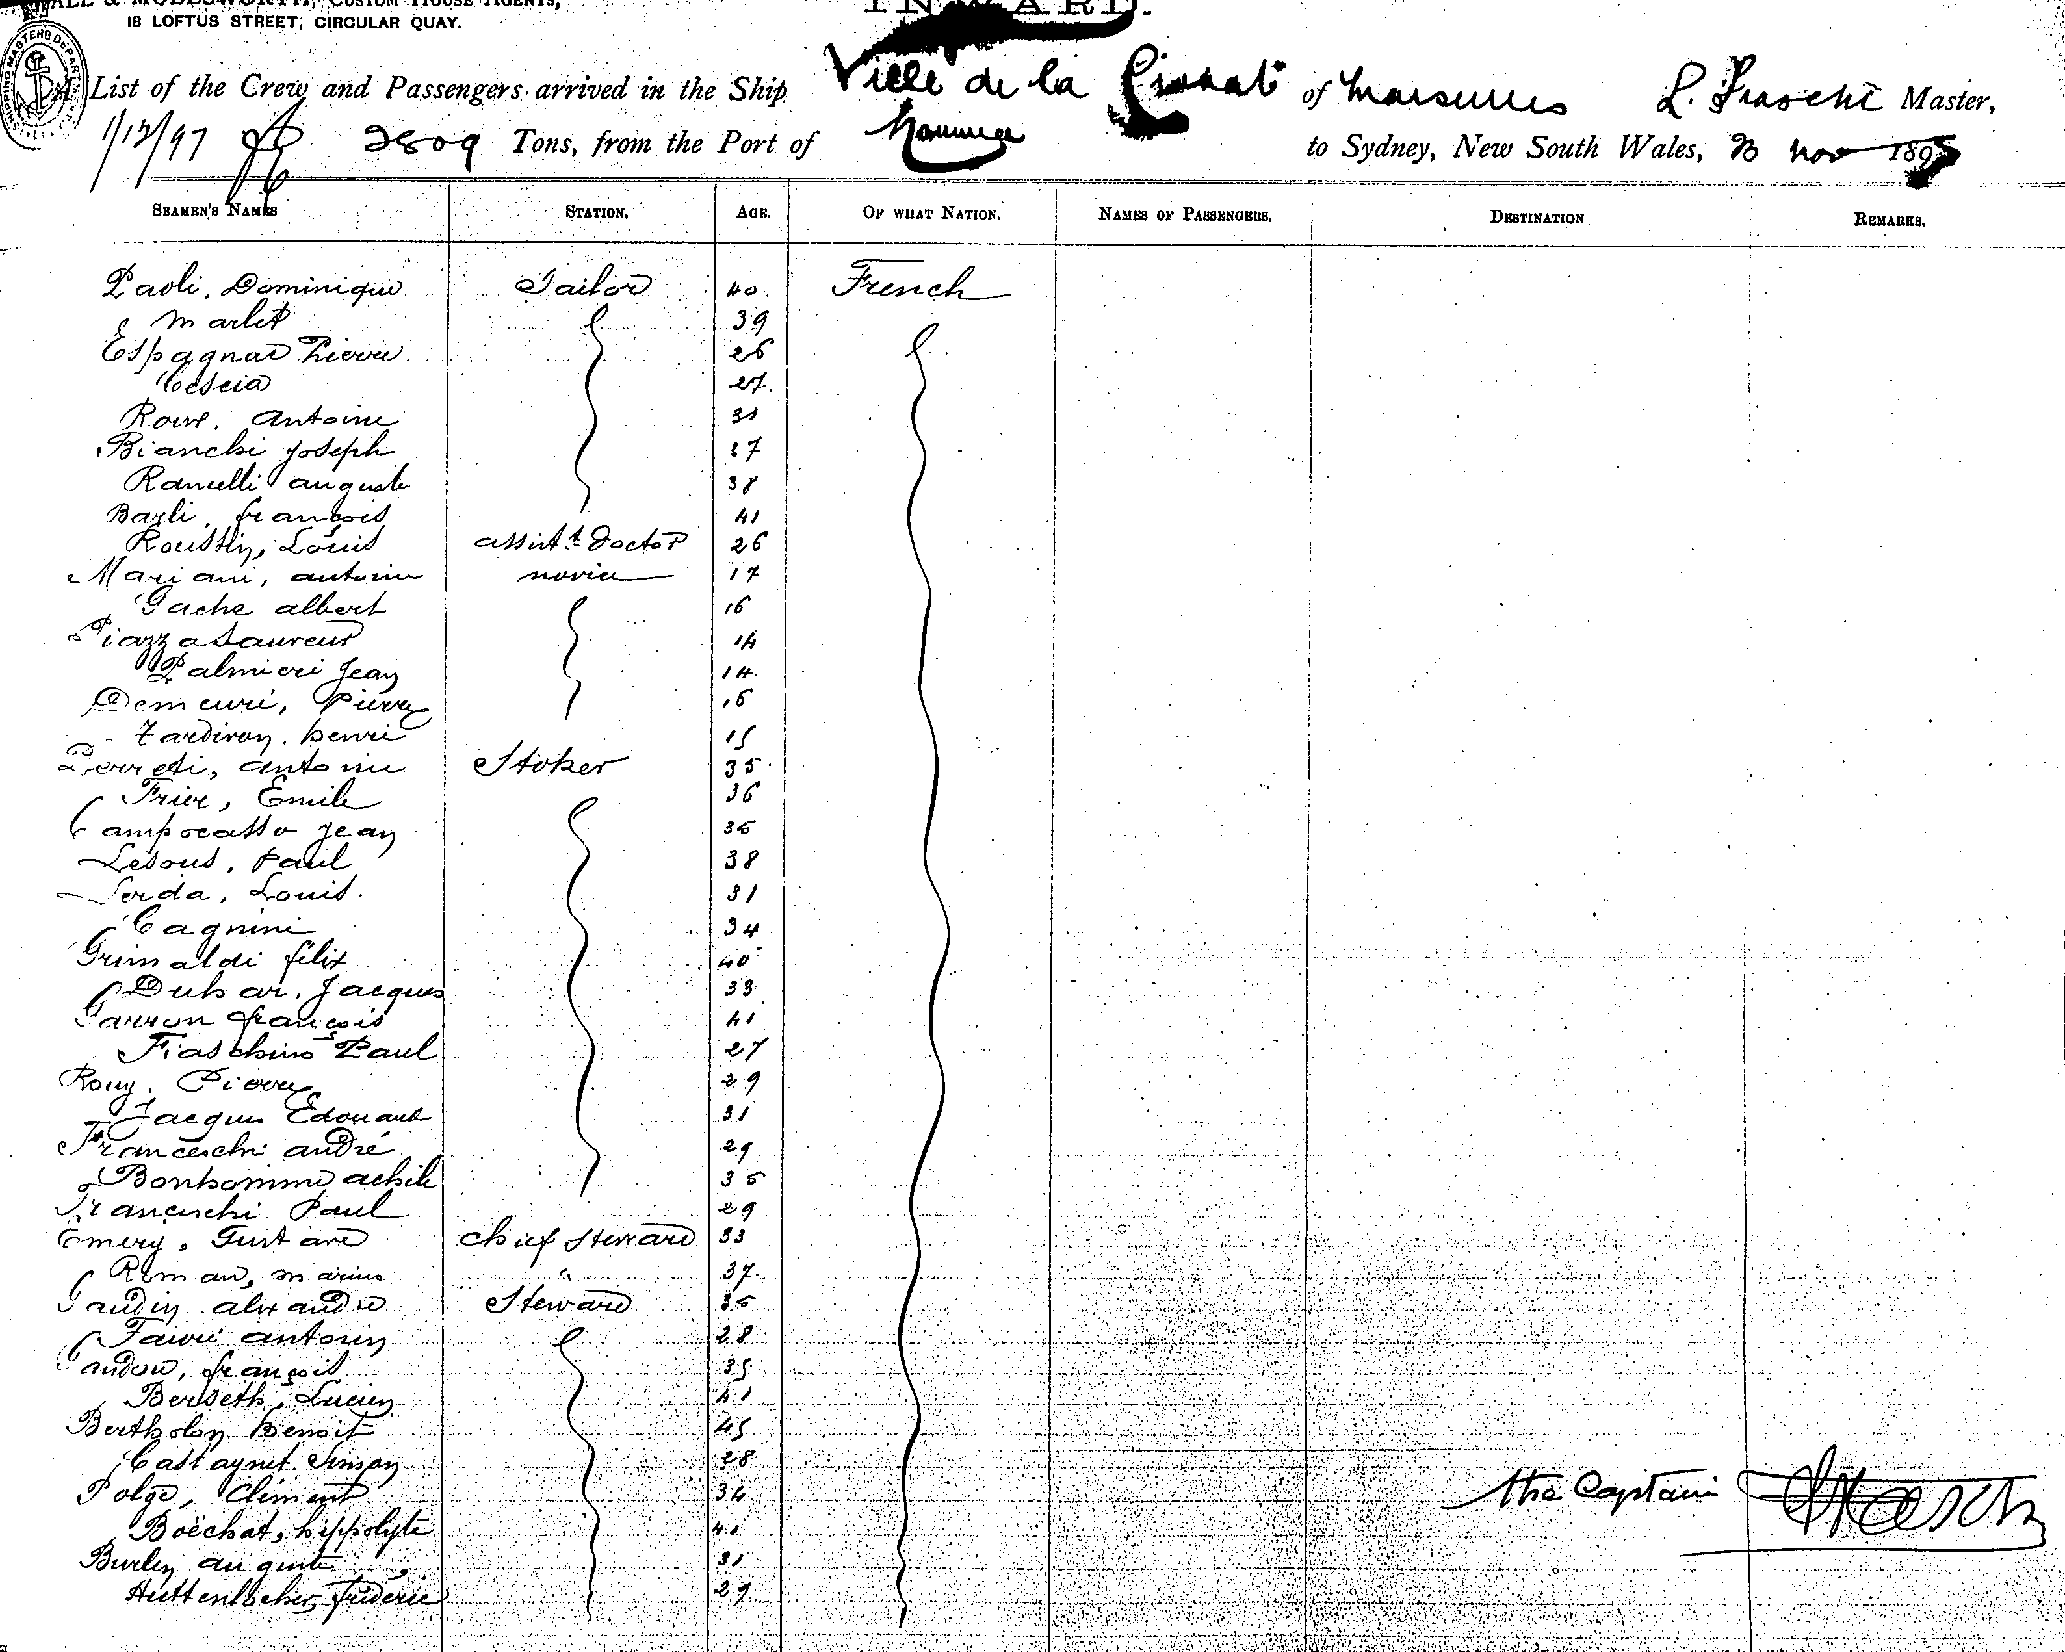 18 LOFTUS STREET, CIRCULAR QUAY.
INWARD.
A List of the Crew and Passengers arrived in the Ship Ville de la Ciotat of Marseilles L. Fiaschi Master,
1/12/97 2809 Tons, from the Port of Noumea to Sydney, New South Wales, 30 Nov 1897
SEAMEN'S NAMES STATION. AGE. OF WHAT NATION. NAMES OF PASSENGERS. DESTINATION REMARKS.
Paoli, Dominique Sailor 40 French
Marlet 39
Espagnac Pierre 26
Cescia 27
Antoine
Bianchi Joseph 37
Ranulli auguste 38
Bazli, françois 41
Roustin, Louis assist.t doctor 26
Mariani, antoine novice 17
Gache albert 16
Piazza Sauveur 14
Palmieri Jean 14
Demeuré, Pierre 16
Tardivon, henri 15
Perreti, antoine Stoker 35
Emile 36
Campocasso Jean 36
Lesous, Paul 38
Serda, Louis. 31
Cagnini 34
Grimaldi félix 40
Jacques 33
Garron françois 41
Fiaschino Paul 27
Rouy, Pierre 29
Jacques Edouard 31
Franceschi andré 29
Bonhomme achile 36
Franceschi Paul 29
Emery, Gustave chief Steward 33
Roman, marius " 37
Gaudin alexandre Steward 36
Favre antonin 28
Gaudon, françois 35
Berseth, Lucien 41
Bertholon Benoit 45
Castaynet Simon 28
Polge, Clément 34
Boëchat, hippolyte 41
Burley auguste 31
Huttenlocher, fréderic 29
the Captain